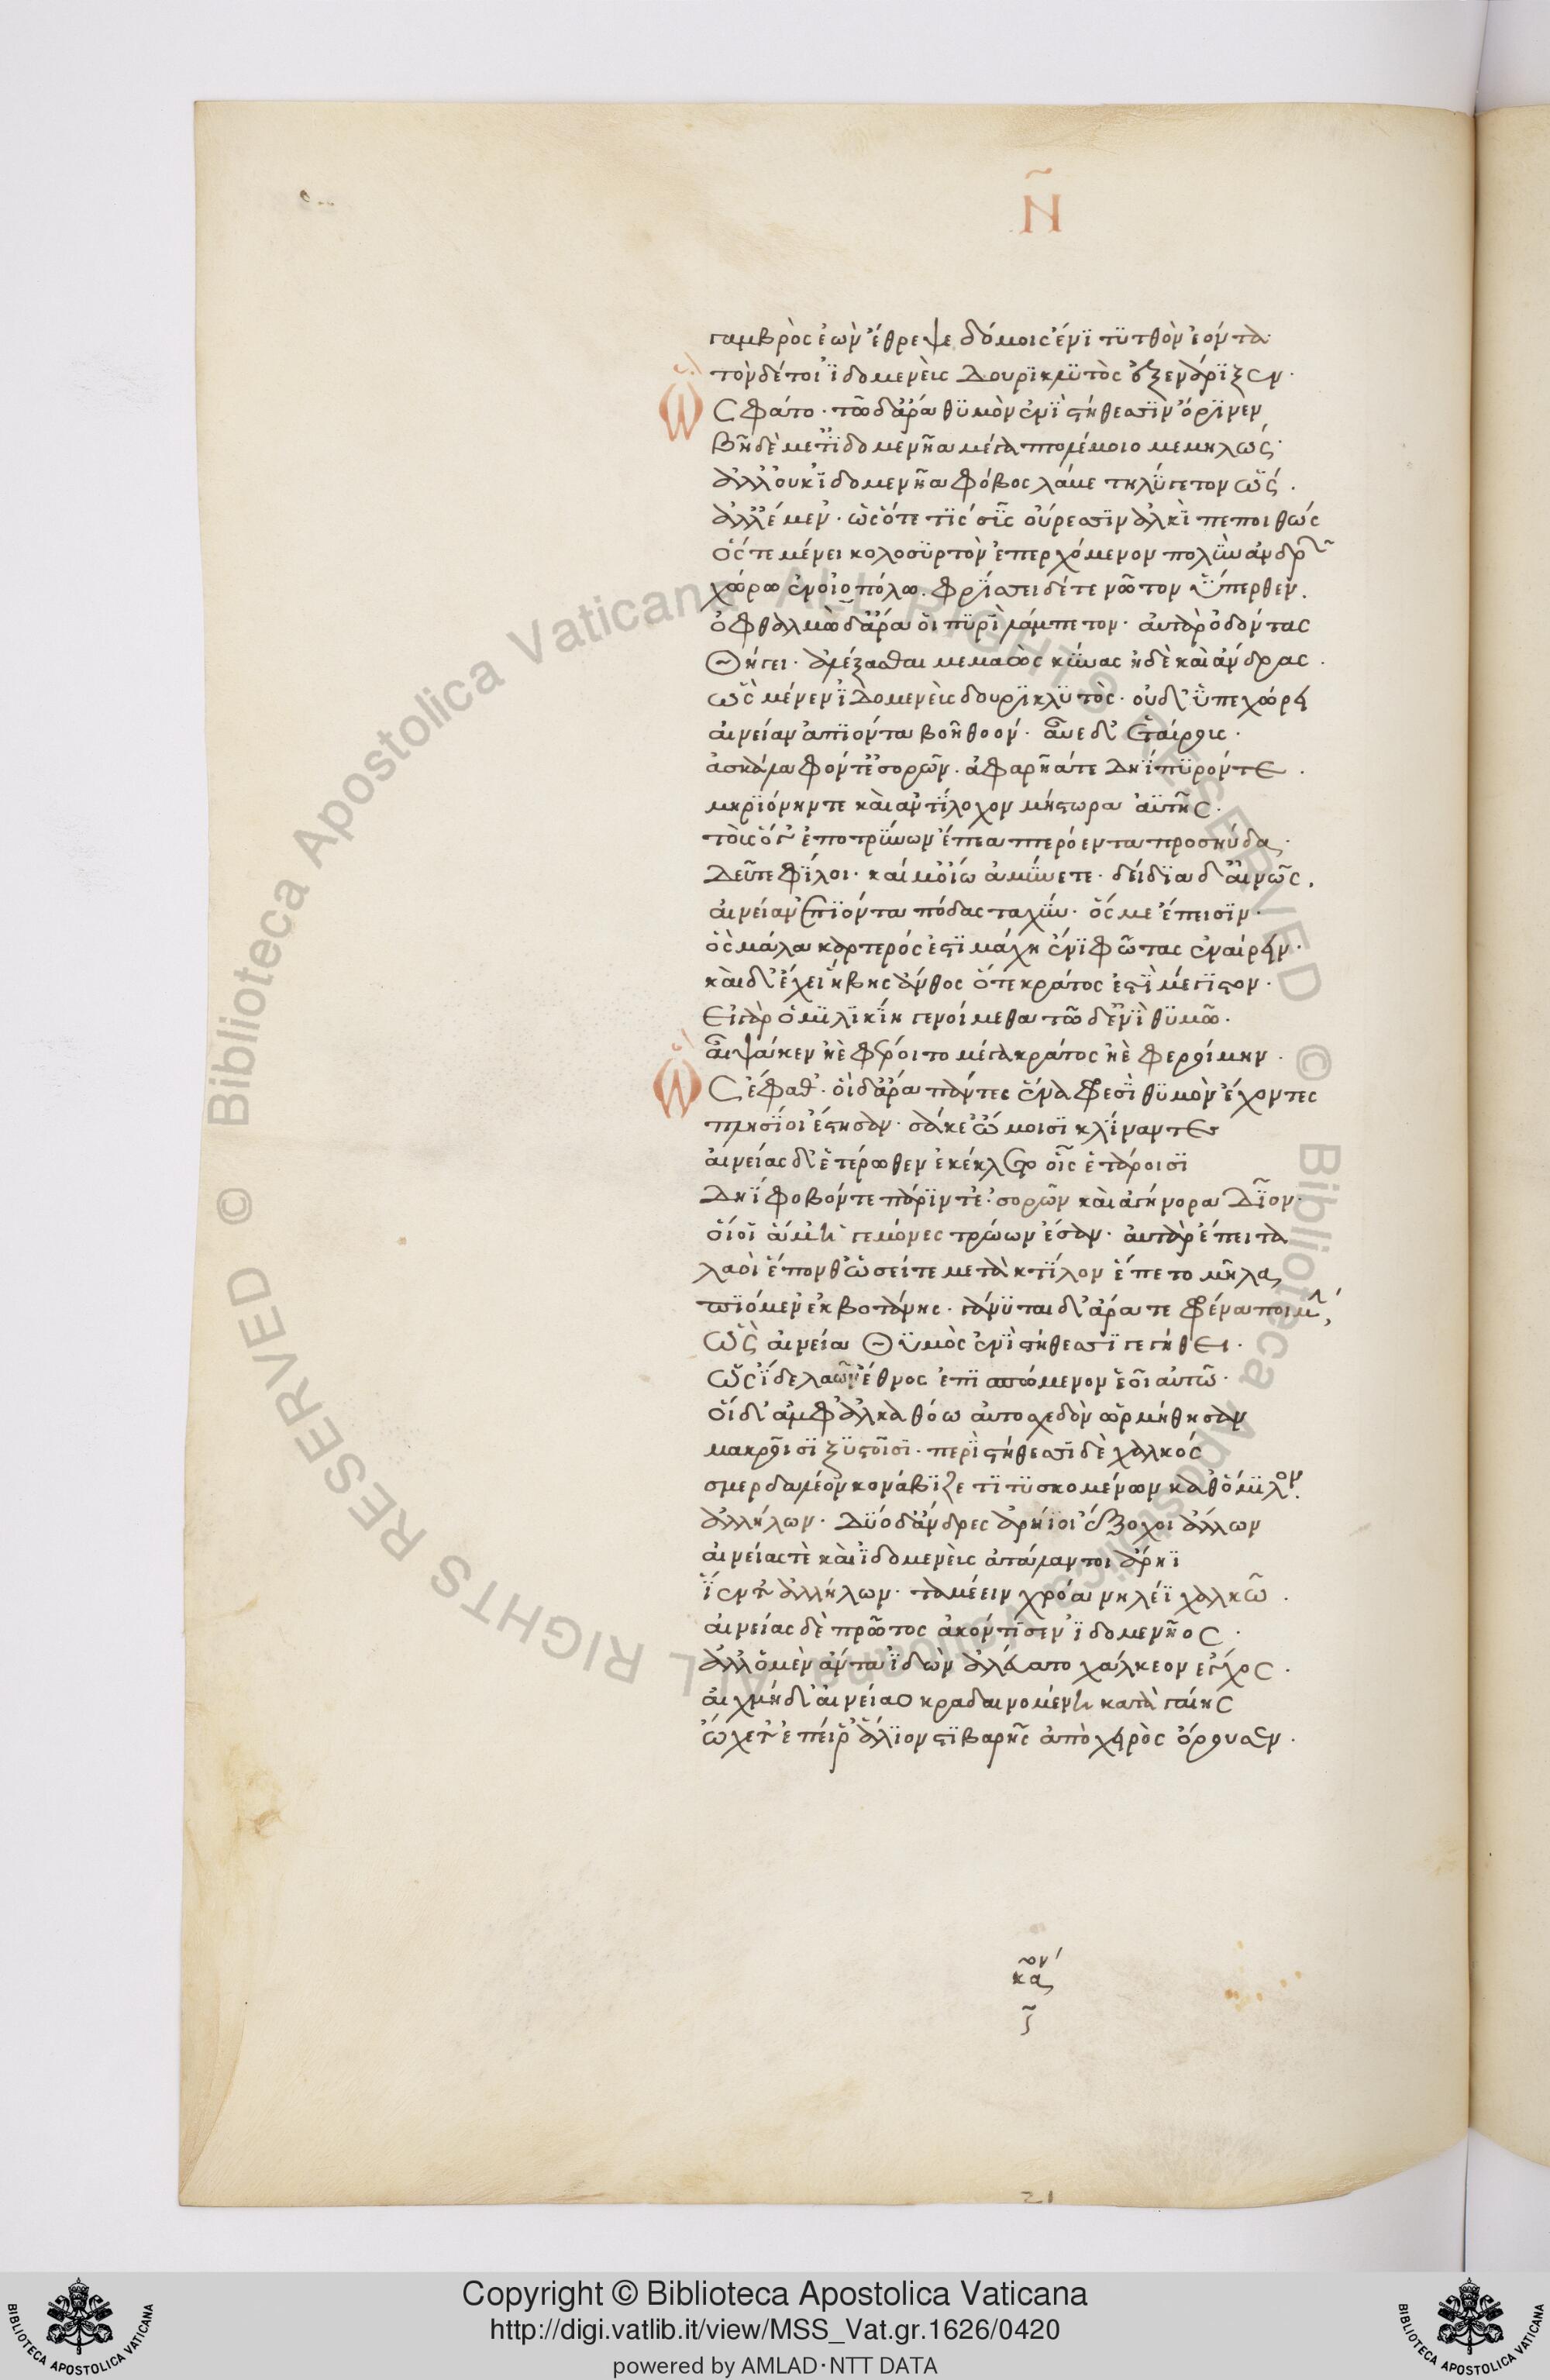 Ν
γαμβρὸς ἐὼν ἔθρεψε δόμοις ἔνϊ τϋτθὸν ἐόντα·
τὸν δέ τοι ἰ̈δομενεὺς δουρϊκλϋτὸς ἐξενάρϊξεν·
Ὣς φάτο· τῶ δ ἄρα θϋμὸν ἐνϊ στήθεσσϊν ὄρϊνεν
βῆ δὲ μετ ἰ̈δομενῆα μέγα πτολέμοιο μεμηλώς·
ἀλλ οὐκ ἰ̈δομενῆα φόβος λάβε τηλύγετον ὥς.
ἀλλ ἔμεν· ὡς ὅτε τίς σῦς οὔρεσϊν ἀλκὶ πεποιθώς
ὅς τε μένει κολοσϋρτὸν ἐπερχόμενον πολὺν ἀνδρῶν
χώρω ἐν οἰοπόλω. φρίσσει δέ τε νῶτον ὕπερθεν.
ὀφθαλμὼ δ ἄρα οἱ πϋρὶ λάμπετον· αὐτὰρ ὀδόντας
θήγει· ἀλέξασθαι μεμαὼς κύνας ἠδὲ καὶ ἄνδρας.
ὣς μένεν ἰ̈δομενεὺς δουρϊκλϋτὸς· οὐδ' ὑπεχώρει
αἰνείαν ἐπϊόντα βοῆθοον· αὖε δ' ἑταίρους·
ἀσκάλαφόν τ ἐσορῶν· ἀφαρῆά τε δηΐπϋρόν τε.
μηρϊόνην τε καὶ ἀντΐλοχον μήστωρα ἀϋτῆς·
τοὺς ὅγ' ἐποτρύνων ἔπεα πτερόεντα προσηύδα·
δεῦτε φΐλοι· καί μ' οἴω ἀμύνετε· δείδϊα δ αἰνῶς.
αἰνείαν ἐπϊόντα πόδας ταχὺν· ὅς μοι ἔπεισϊν·
ὃς μάλα καρτερός ἐστϊ μάχη ἔνϊ φῶτας ἐναίρειν·
καὶ δ' ἔχει ἥβης ἄνθος ὅ τε κράτος ἐστϊ μέγϊστον·
εἰ γὰρ ὁμϊλϊκΐη γενοίμεθα τῶ δ ἐνϊ θϋμῶ·
αἶψά κεν ἠὲ φέροιτο μέγα κράτος ἠὲ φεροίμην.
Ὣς ἔφαθ'· οἱ δ ἄρα πάντες ἕνα φρεσὶ θϋμὸν ἔχοντες
πλησΐοι ἔστησαν· σάκε ὤμοισϊ κλΐναντες
αἰνείας δ' ἑτέρωθεν ἐκέκλετο οἷς ἑτάροισϊ
δηΐφοβόν τε πάρϊν τ' ἐσορῶν καὶ ἀγήνορα δῖον·
οἵ οἱ ἅμ' ἡγεμόνες τρώων ἔσαν· αὐτὰρ ἔπειτα
λαοὶ ἕπονθ ὡσείτε μετὰ κτΐλον ἕπετο μῆλα
πϊόμεν' ἐκ βοτάνης· γάνϋται δ' ἄρα τε φρένα ποιμήν,
ὣς αἰνεία θϋμὸς ἐνϊ στήθεσσϊ γεγήθει·
ὡς ἴ̈δε λαῶν ἔθνος ἐπϊσπόμενον ἑοῖ αὐτῶ·
οἵ δ' ἀμφ ἀλκαθόω αὐτοσχεδὸν ὡρμήθησαν
μακροῖσϊ ξϋστοῖσϊ· περὶ στήθεσσϊ δὲ χαλκός
σμερδαλέον κονάβϊζε τϊτϋσκομένων καθ ὅμϊλον.
ἀλλήλων· δύο δ ἄνδρες ἀρήϊοι ἔξοχοι ἄλλων
αἰνείας τὲ καὶ ἰ̈δομενεὺς ἀτάλαντοι ἄρηϊ
ἵεντ' ἀλλήλων· ταμέειν χρόα νηλέϊ χαλκῶ.
αἰνείας δὲ πρῶτος ἀκόντϊσεν ἰ̈δομενῆος·
ἀλλ ὁ μὲν ἄντα ἰ̈δὼν ἀλεύατο χάλκεον ἔγχος.
αἰχμὴ δ' αἰνείαο κραδαινομένη κατὰ γαίης
ὤχετ' ἐπεί ῥ' ἅλϊον στϊβαρῆς ἀπὸ χειρὸς ὄρουσεν.
21
Copyright © Biblioteca Apostolica Vaticana
http://digi.vatlib.it/view/MSS_Vat.gr.1626/0420
powered by AMLAD·NTT DATA
BIBLIOTECA APOSTOLICA VATICANA
BIBLIOTECA APOSTOLICA VATICANA
Biblioteca Apostolica Vaticana ALL RIGHTS RESERVED ©
Biblioteca Apostolica Vaticana ALL RIGHTS RESERVED ©